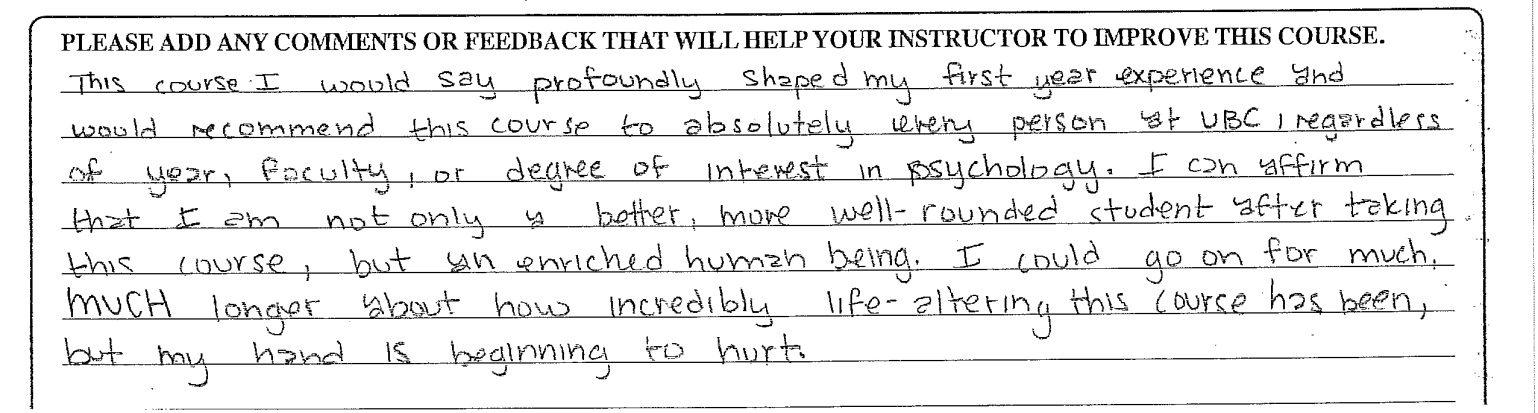 PLEASE ADD ANY COMMENTS OR FEEDBACK THAT WILL HELP YOUR INSTRUCTOR TO IMPROVE THIS COURSE.
This course I would say profoundly shaped my first year experience and
would recommend this course to absolutely every person at UBC, regardless
of year, faculty, or degree of interest in psychology. I can affirm
that I am not only a better, more well-rounded student after taking
this course, but an enriched human being. I could go on for much,
MUCH longer about how incredibly life-altering this course has been,
but my hand is beginning to hurt.